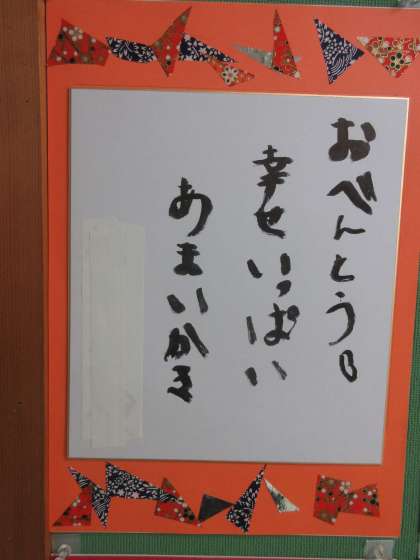 おべんとう
幸せいっぱい
あまいかき